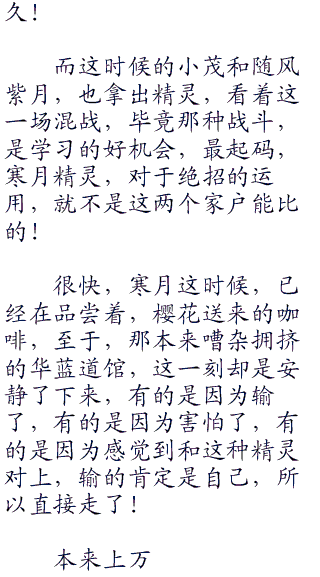 久！
而这时候的小茂和随风
紫月，也拿出精灵，看着这
一场混战，毕竟那种战斗，
是学习的好机会，最起码，
寒月精灵，对于绝招的运
用，就不是这两个家户能比
的！
很快，寒月这时候，已
经在品尝着，樱花送来的咖
啡，至于，那本来嘈杂拥挤
的华蓝道馆，这一刻却是安
静了下来，有的是因为输
了，有的是因为害怕了，有
的是因为感觉到和这种精灵
对上，输的肯定是自己，所
以直接走了！
本来上万